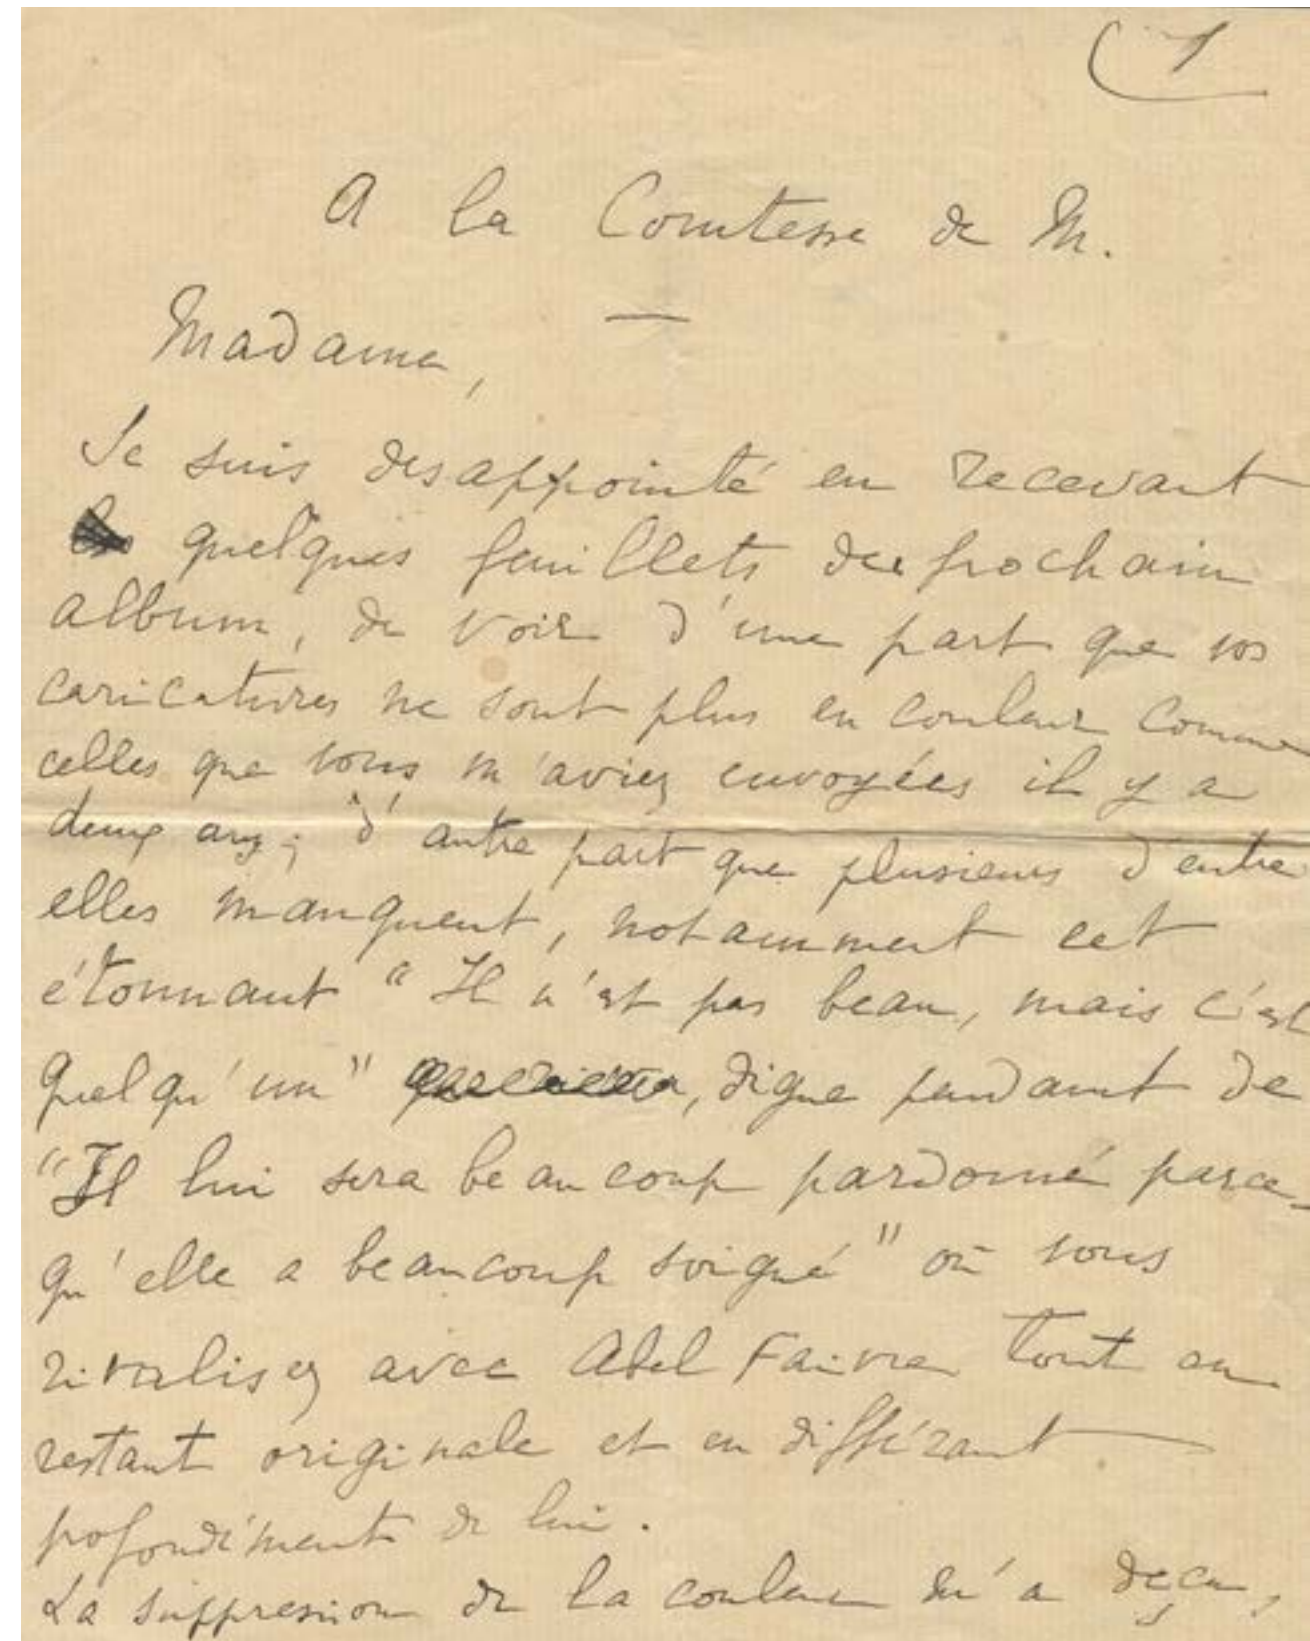 1
A la Comtesse de M.
Madame,
Je suis desappointé en recevant
quelques feuillets du prochain
album, de voir d'une part que vos
caricatures ne sont plus en couleur comme
celles que vous m'aviez envoyées il y a
deux ans ; d'autre part que plusieurs d'entre
elles manquent, notamment cet
étonnant "Il n'est pas beau, mais c'est
quelqu'un" , digne pendant de
"Il lui sera beaucoup pardonné parce-
qu'elle a beaucoup soigné" où vous
rivalisez avec Abel Faivre tout en
restant originale et en différant
pofondément de lui.
La suppression de la couleur m'a deçu,